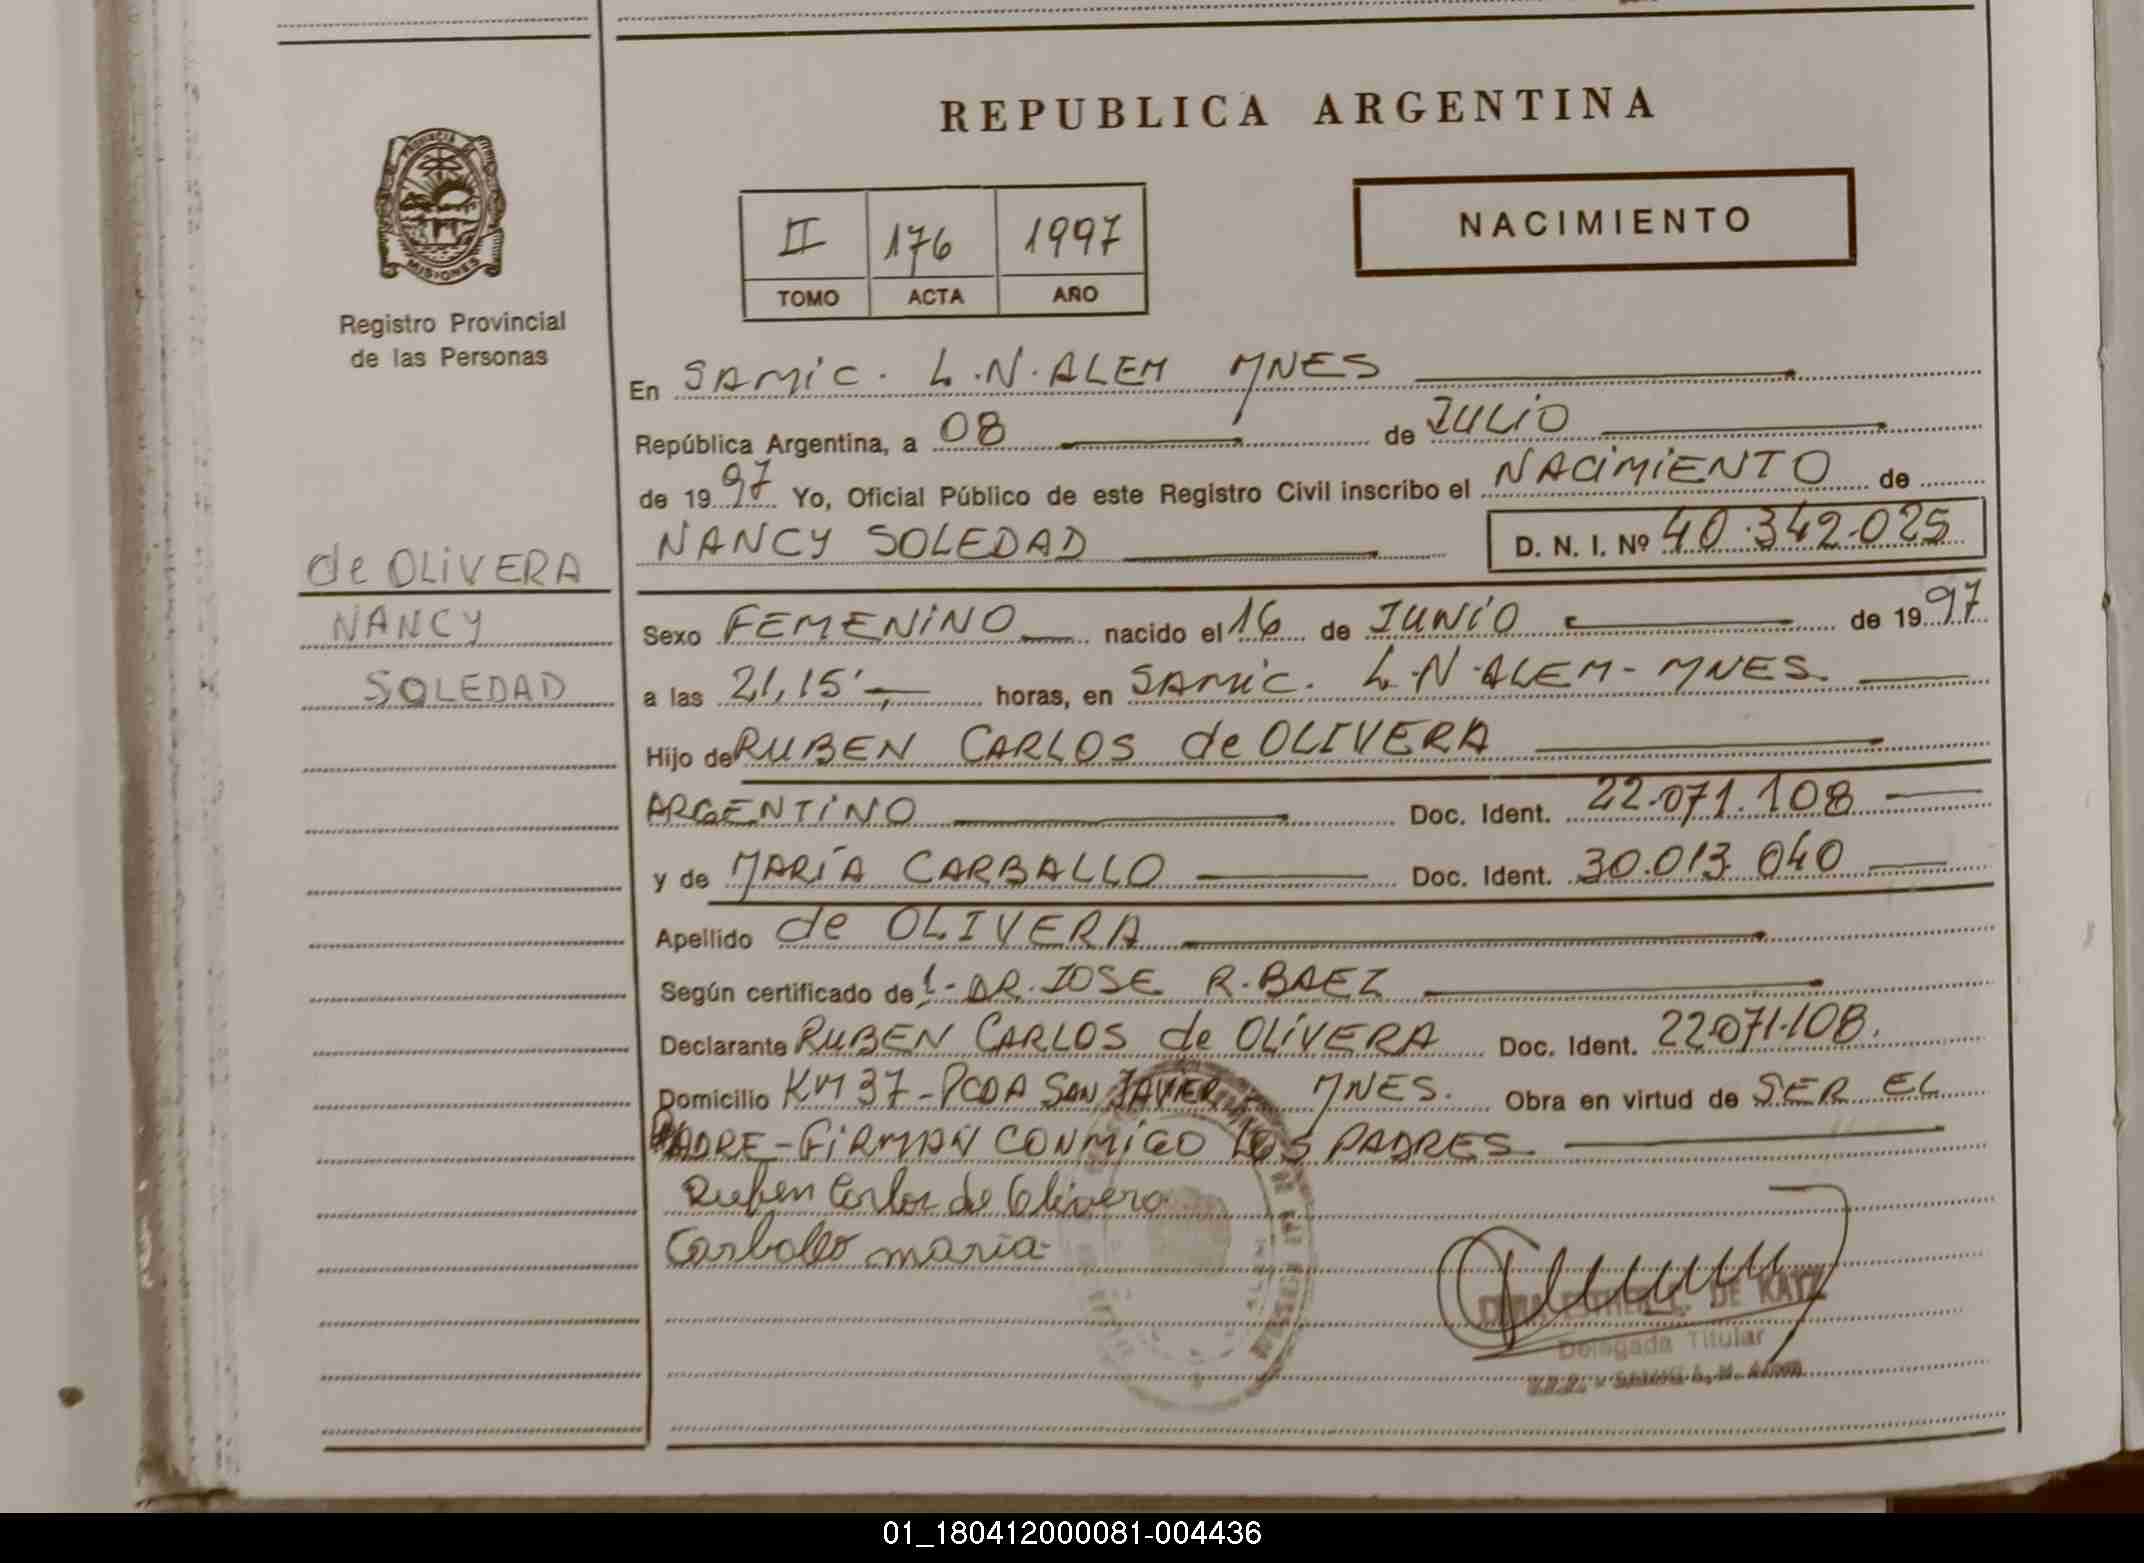 REPUBLICA ARGENTINA
PROVINCIA DE
MISIONES
Registro Provincial
de las Personas
II 176 1997
TOMO ACTA AÑO
NACIMIENTO
En SAMIC. L.N.ALEM MNES
República Argentina, a 08 de JULIO
de 1997 Yo, Oficial Público de este Registro Civil inscribo el NACIMIENTO de
NANCY SOLEDAD D. N. I. Nº 40.342.025
de OLIVERA
NANCY
SOLEDAD
Sexo FEMENINO nacido el 16 de JUNIO de 1997
a las 21,15' horas, en SAMIC. L.N.ALEM-MNES.
Hijo de RUBEN CARLOS de OLIVERA
ARGENTINO Doc. Ident. 22.071.108
y de MARÍA CARBALLO Doc. Ident. 30.013.040
Apellido de OLIVERA
Según certificado de!-DR.JOSE R.BAEZ
Declarante RUBEN CARLOS de OLIVERA Doc. Ident. 22.071.108.
Domicilio KM 37-PCDA SAN JAVIER MNES. Obra en virtud de SER EL
PADRE-FIRMAN CONMIGO LOS PADRES
Ruben Carlos de Olivera
Carballo maria
ESTHER L. DE KATZ
Delegada Titular
01_180412000081-004436